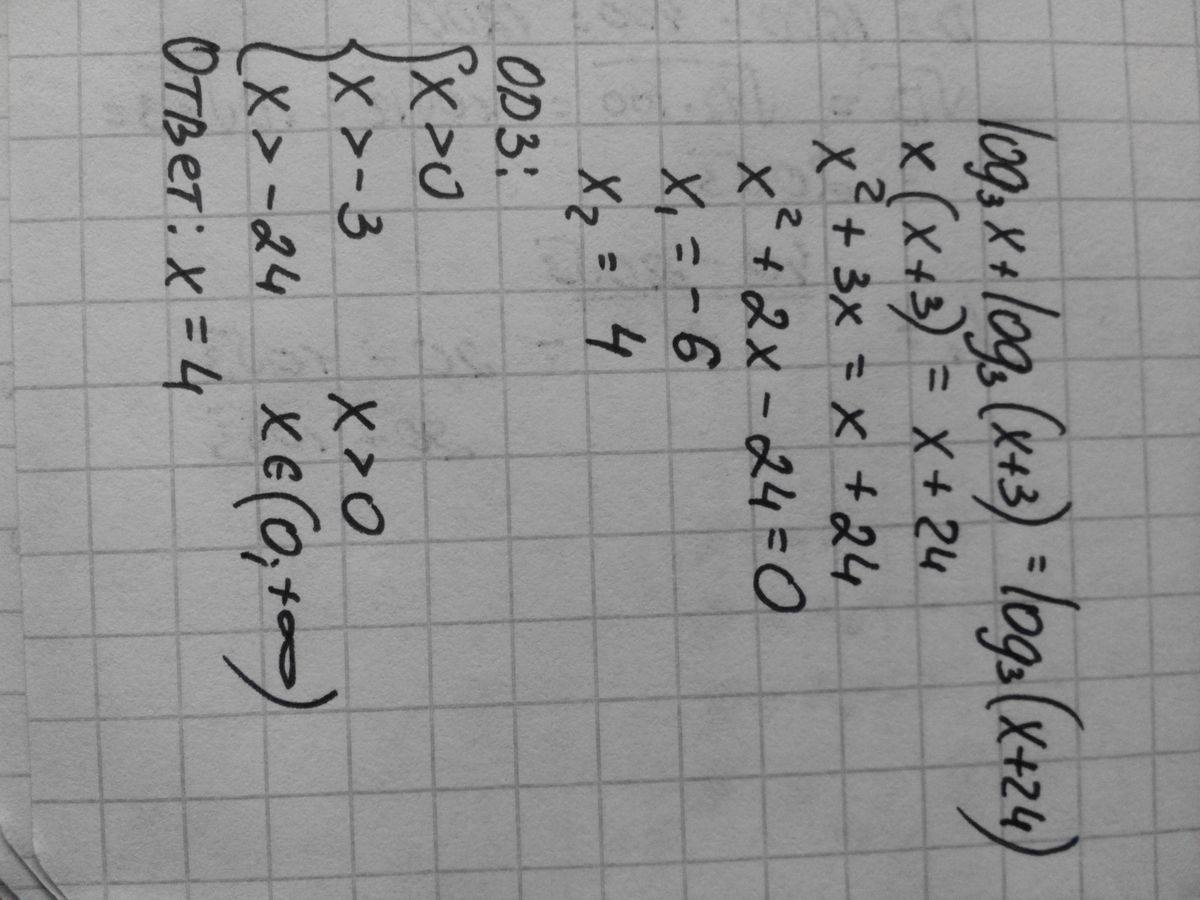 log₃x + log₃(x+3) = log₃(x+24)
x(x+3) = x + 24
x² + 3x = x + 24
x² + 2x - 24 = 0
x₁ = -6
x₂ = 4
ОДЗ:
{ x > 0
x > -3 x > 0
x > -24 x ∈ (0; +∞)
Ответ: x = 4